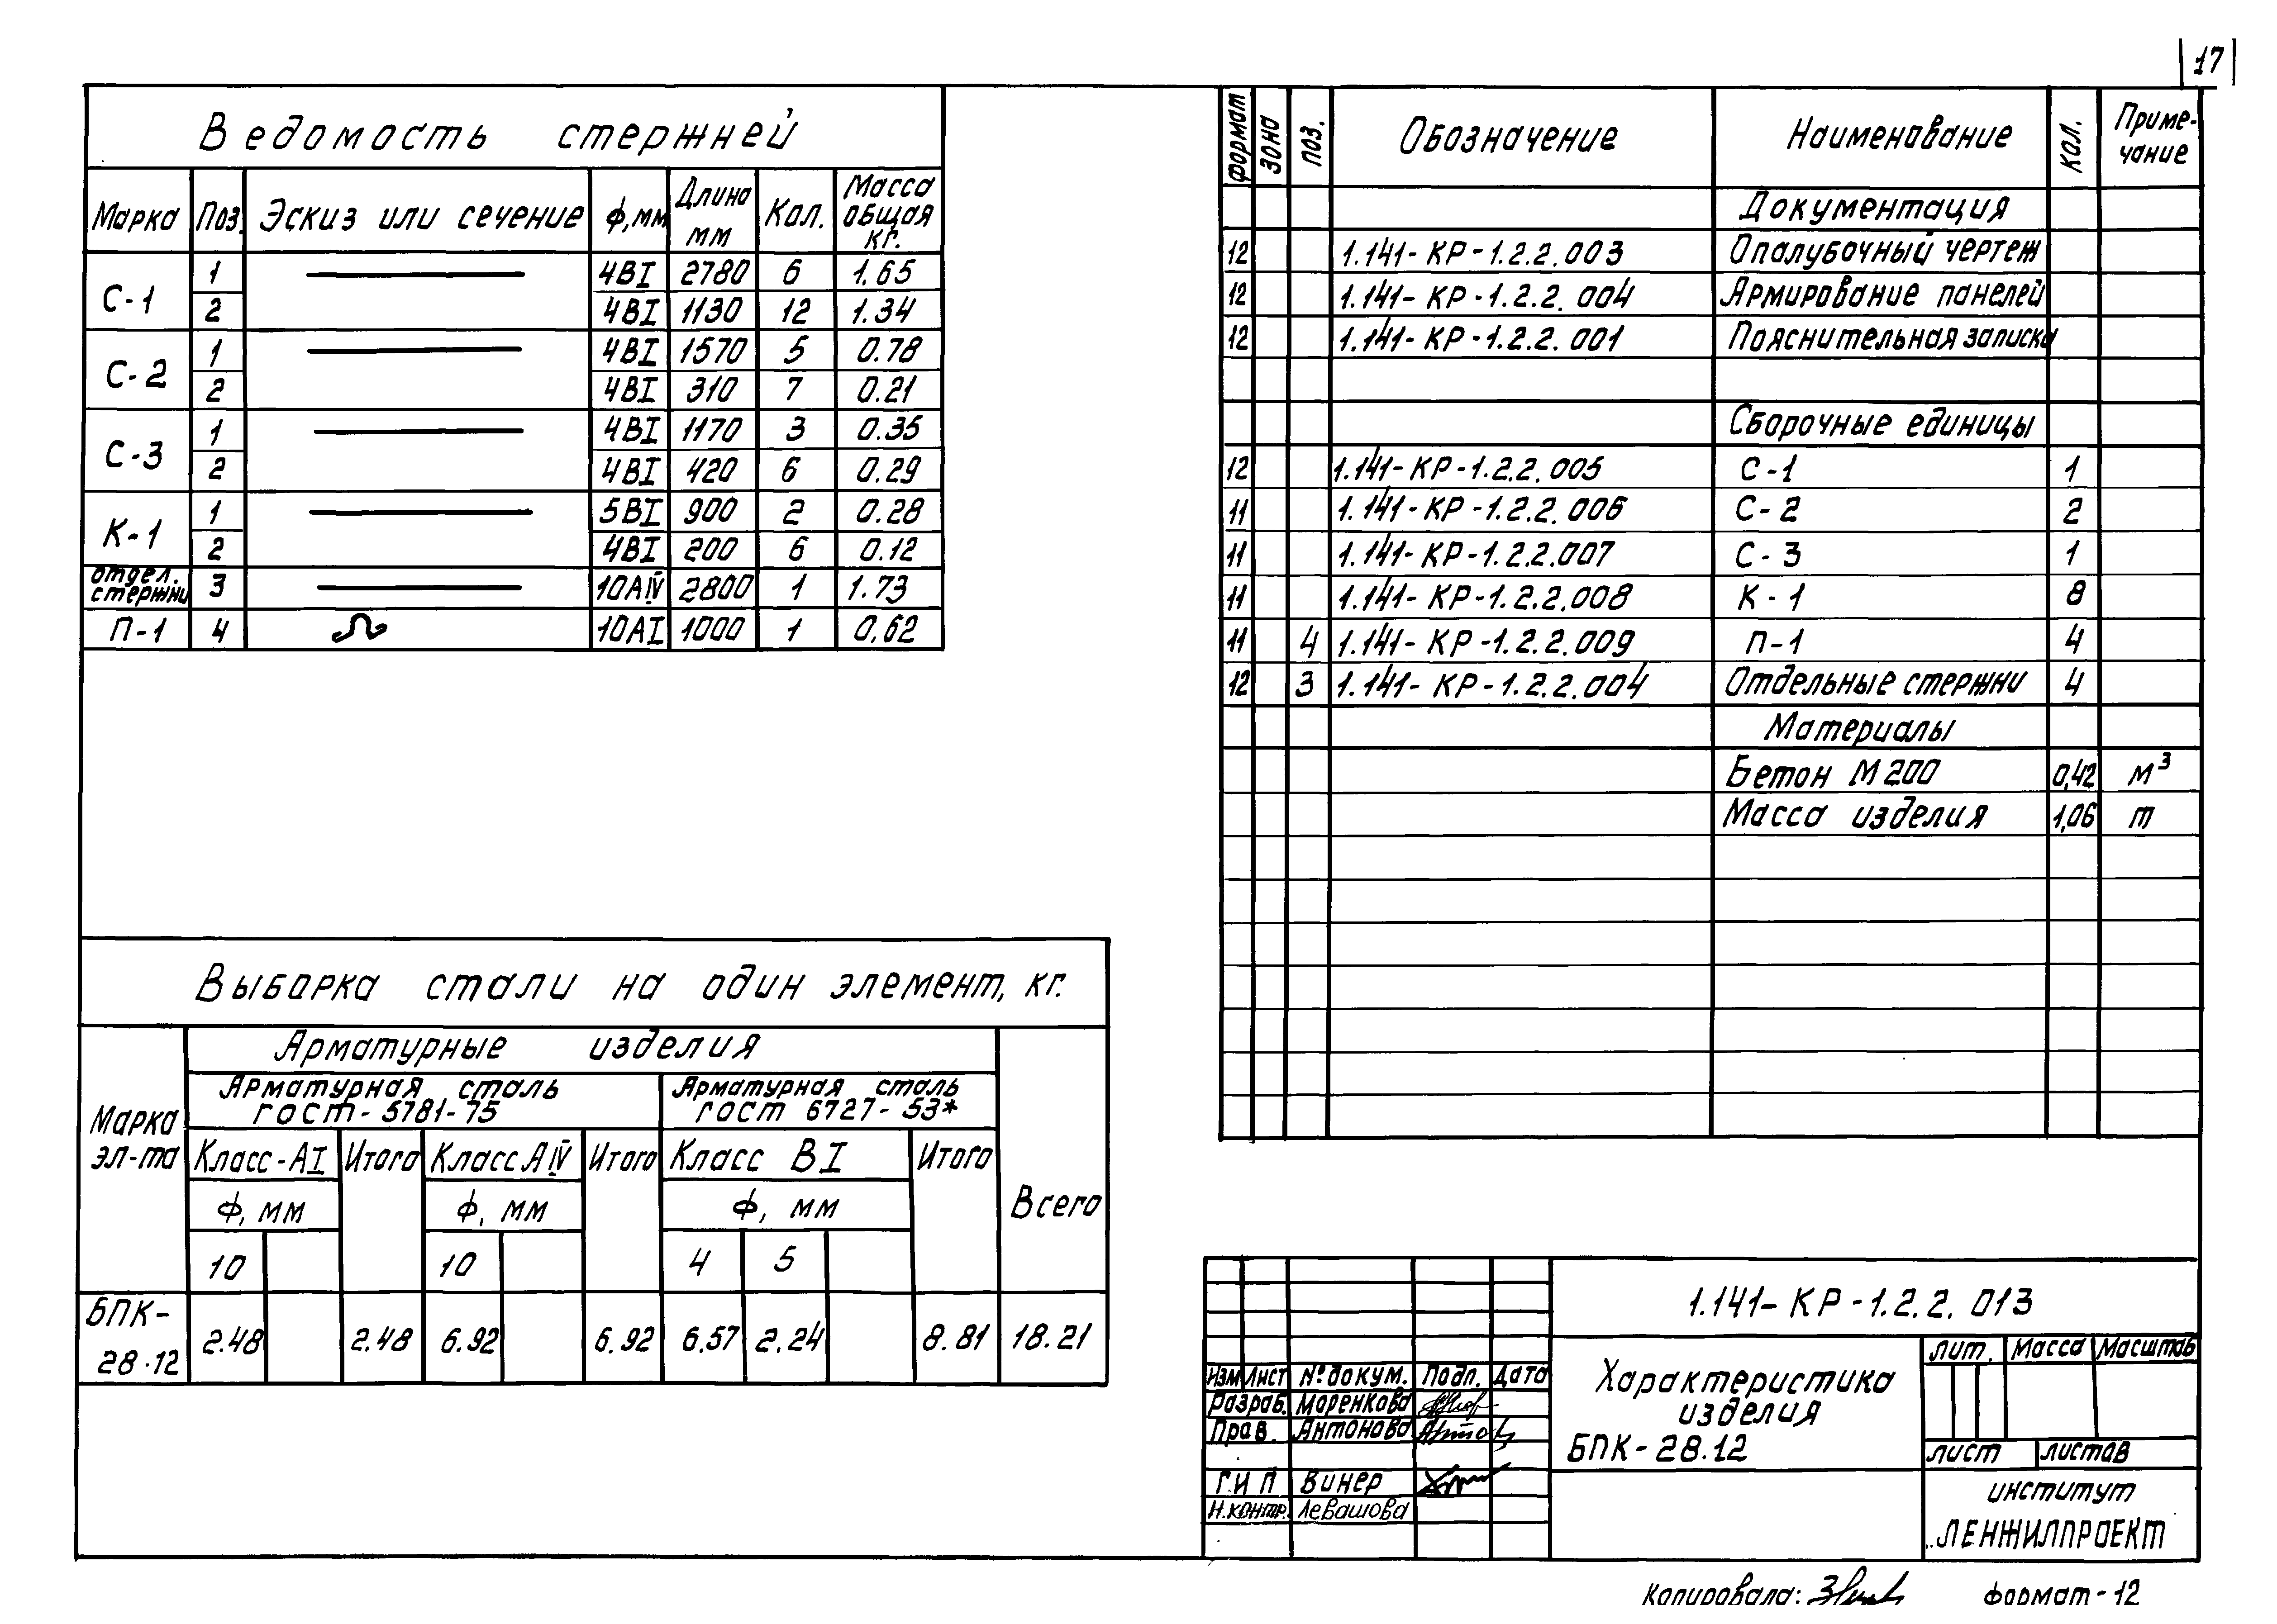 17
Ведомость стержней
Марка Поз. Эскиз или сечение ф,мм Длина мм Кол. Масса общая кг.
С-1 1 4ВI 2780 6 1.65
2 4ВI 1130 12 1.34
С-2 1 4ВI 1570 5 0.78
2 4ВI 310 7 0.21
С-3 1 4ВI 1170 3 0.35
2 4ВI 420 6 0.29
К-1 1 5ВI 900 2 0.28
2 4ВI 200 6 0.12
отдел. стержни 3 10АIV 2800 1 1.73
П-1 4 10АI 1000 1 0.62
формат зона поз. Обозначение Наименование кол. Приме-чание
Документация
12 1.141-КР-1.2.2.003 Опалубочный чертеж
12 1.141-КР-1.2.2.004 Армирование панелей
12 1.141-КР-1.2.2.001 Пояснительная записка
Сборочные единицы
12 1.141-КР-1.2.2.005 С-1 1
11 1.141-КР-1.2.2.006 С-2 2
11 1.141-КР-1.2.2.007 С-3 1
11 1.141-КР-1.2.2.008 К-1 8
11 4 1.141-КР-1.2.2.009 П-1 4
12 3 1.141-КР-1.2.2.004 Отдельные стержни 4
Материалы
Бетон М200 0,42 м³
Масса изделия 1,06 т
Выборка стали на один элемент, кг.
Марка эл-та Арматурные изделия Всего
Арматурная сталь Арматурная сталь
ГОСТ-5781-75 ГОСТ 6727-53*
Класс-АI Итого Класс АIV Итого Класс ВI Итого
ф, мм ф, мм ф, мм
10 10 4 5
БПК-28.12 2.48 2.48 6.92 6.92 6.57 2.24 8.81 18.21
1.141-КР-1.2.2.013
Изм Лист №докум. Подп. Дата
Разраб. Моренкова
Пров. Антонова
ГИП Винер
Н.контр. Левашова
Характеристика
изделия
БПК-28.12
лит. Масса Масштаб
лист листов
институт
ЛЕНЖИЛПРОЕКТ
копировала: формат-12